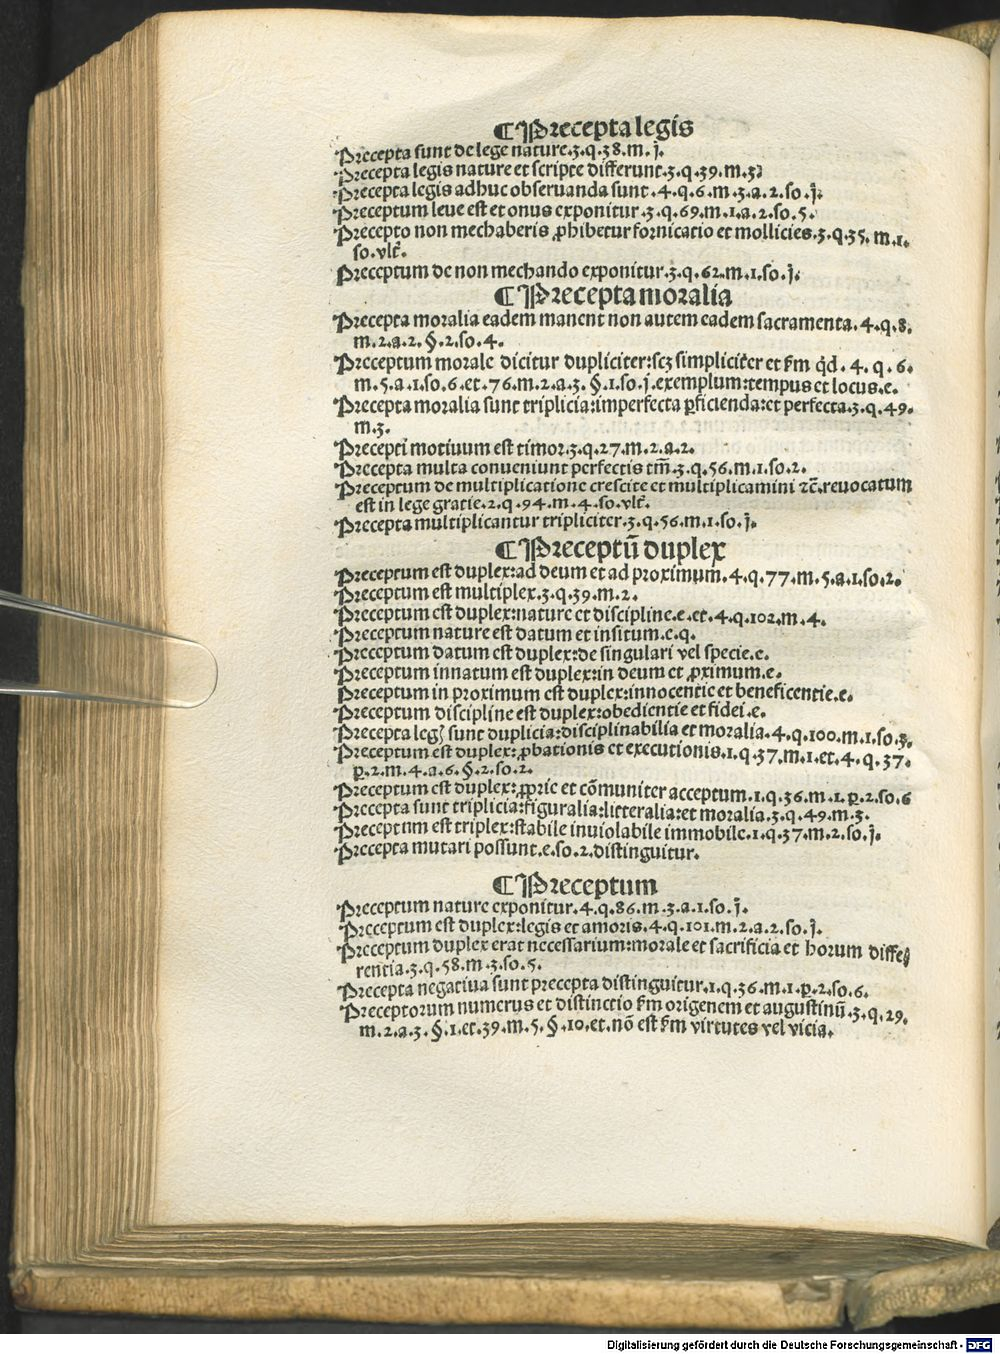 ¶ Precepta legis
Precepta sunt de lege nature.3.q.38.m.j.
Precepta legis nature et scripte differunt.3.q.39.m.3
Precepta legis adhuc obseruanda sunt.4.q.6.m.3.a.2.so.j.
Preceptum leue est et onus exponitur.3.q.69.m.1.a.2.so.5.
Precepto non mechaberis ꝓhibetur fornicatio et mollicies.3.q.35.m.1.
so.vlt̄.
Preceptum de non mechando exponitur.3.q.62.m.1.so.j.
¶ Precepta moralia
Precepta moralia eadem manent non autem eadem sacramenta.4.q.8.
m.2.a.2.§.2.so.4.
Preceptum morale dicitur dupliciter:scꝫ simpliciter et ẜm qd̄.4.q.6.
m.5.a.1.so.6.et.76.m.2.a.3.§.1.so.j.exemplum:tempus et locus.e.
Precepta moralia sunt triplicia:imperfecta ꝑficienda:et perfecta.3.q.49.
m.3.
Precepti motiuum est timor.3.q.27.m.2.a.2.
Precepta multa conueniunt perfectis tm̄.3.q.56.m.1.so.2.
Preceptum de multiplicatione crescite et multiplicamini ⁊c̄.reuocatum
est in lege gratie.2.q.94.m.4.so.vlt̄.
Precepta multiplicantur tripliciter.3.q.56.m.1.so.j.
¶ Preceptū duplex
Preceptum est duplex:ad deum et ad proximum.4.q.77.m.5.a.1.so.2.
Preceptum est multiplex.3.q.39.m.2.
Preceptum est duplex:nature et discipline.e.et.4.q.102.m.4.
Preceptum nature est datum et insitum.e.q.
Preceptum datum est duplex:de singulari vel specie.e.
Preceptum innatum est duplex:in deum et ꝓximum.e.
Preceptum in proximum est duplex:innocentie et beneficentie.e.
Preceptum discipline est duplex:obedientie et fidei.e.
Precepta legꝭ sunt duplicia:disciplinabilia et moralia.4.q.100.m.1.so.3.
Preceptum est duplex:ꝓbationis et executionis.1.q.37.m.1.et.4.q.37.
ꝑ.2.m.4.a.6.§.2.so.2.
Preceptum est duplex:ꝓprie et cōmuniter acceptum.1.q.36.m.1.ꝑ.2.so.6
Precepta sunt triplicia:figuralia:litteralia:et moralia.3.q.49.m.3.
Preceptnm est triplex:stabile inuiolabile immobile.1.q.37.m.2.so.j.
Precepta mutari possunt.e.so.2.distinguitur.
¶ Preceptum
Preceptum nature exponitur.4.q.86.m.3.a.1.so.j.
Preceptum est duplex:legis et amoris.4.q.101.m.2.a.2.so.j.
Preceptum duplex erat necessarium:morale et sacrificia et horum diffe
rentia.3.q.58.m.3.so.5.
Precepta negatiua sunt precepta distinguitur.1.q.36.m.1.ꝑ.2.so.6.
Preceptorum numerus et distinctio ẜm origenem et augustinū.3.q.29.
m.2.a.3.§.1.et.39.m.5.§.10.et.nō est ẜm virtutes vel vicia.
Digitalisierung gefördert durch die Deutsche Forschungsgemeinschaft - DFG